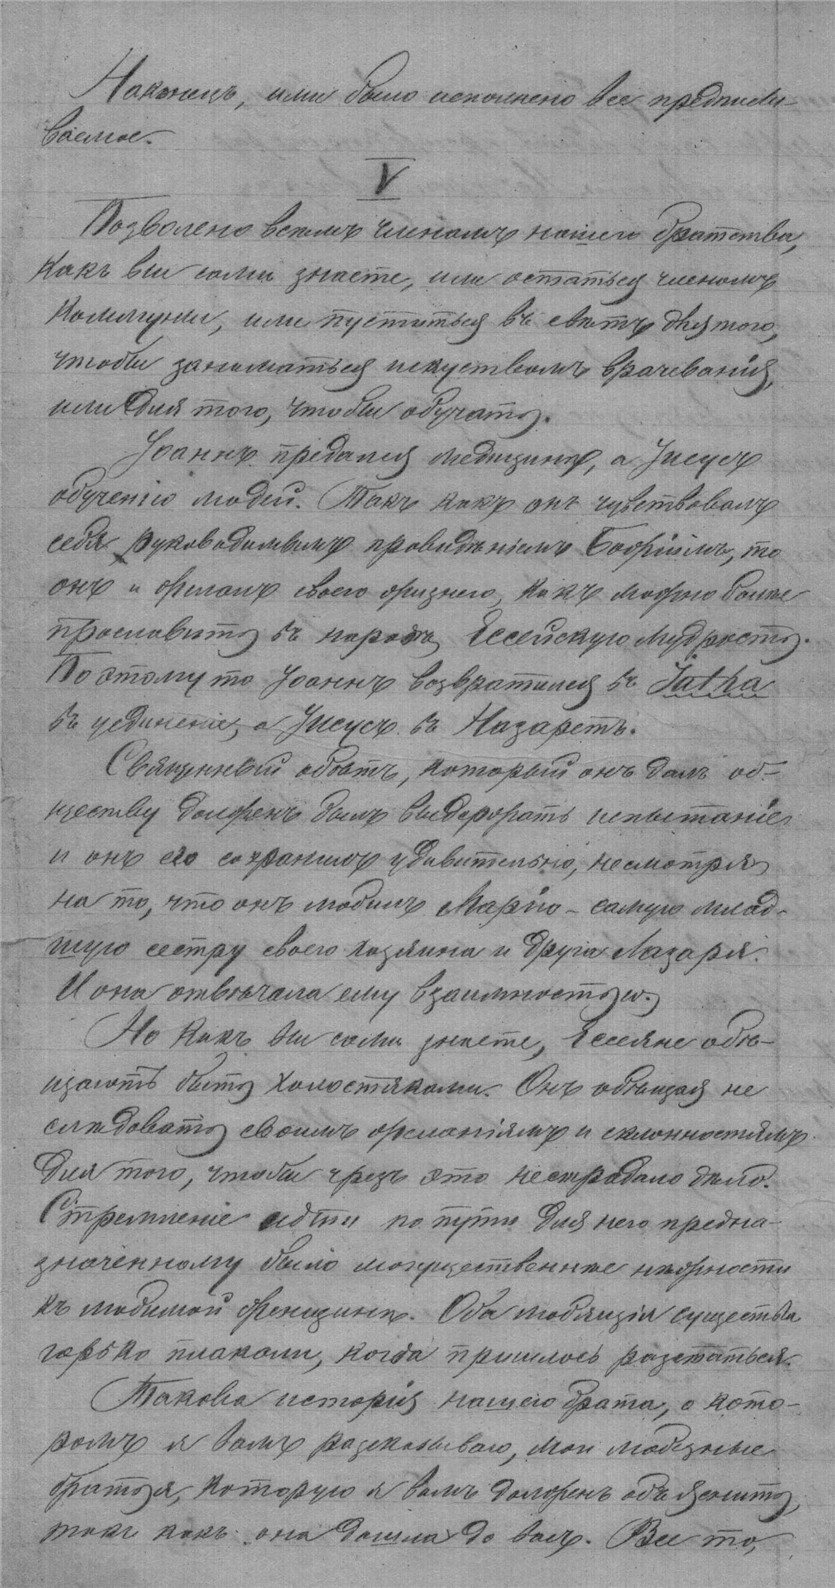 Наконецъ, ими было исполнено все предписы-
ваемое.
V
Позволено всѣмъ членамъ нашего братства,
какъ вы сами знаете, или остаться членомъ
коммуны, или пуститься въ свѣтъ для того,
чтобы заниматься искуствомъ врачеванія,
или для того, чтобы обучать.
Іоаннъ предался медицинѣ, а Іисусъ
обученію людей. Такъ какъ онъ чувствовалъ
себя руководимымъ провидѣніемъ Божіимъ, то
онъ и желалъ своею жизнею, какъ можно болѣе
прославить въ народѣ Ессейскую мудрость.
Поэтому то Іоаннъ возвратился въ Jutha
въ уединеніе, а Іисусъ въ Назаретъ.
Священный обѣтъ, который онъ далъ об-
ществу долженъ былъ выдержать испытаніе
и онъ его сохранилъ удивительно, несмотря
на то, что онъ любилъ Марію – самую млад-
шую сестру своего хозяина и друга Лазаря.
И она отвѣчала ему взаимностью.
Но какъ вы сами знаете, Ессеяне обѣ-
щаютъ быть холостяками. Онъ обѣщая не
слѣдовать своимъ желаніямъ и склонностямъ
для того, чтобы чрезъ это не страдало дѣло.
Стремленіе идти по пути для него предна-
значенному было могущественнѣе нѣжности
къ любимой женщинѣ. Оба любящія существа
горько плакали, когда пришлось разстаться.
Такова исторія нашего брата, о кото-
ромъ я вамъ разсказываю, мои любезные
братья, которую я вамъ долженъ объяснить,
такъ какъ она дошла до васъ. Все то,